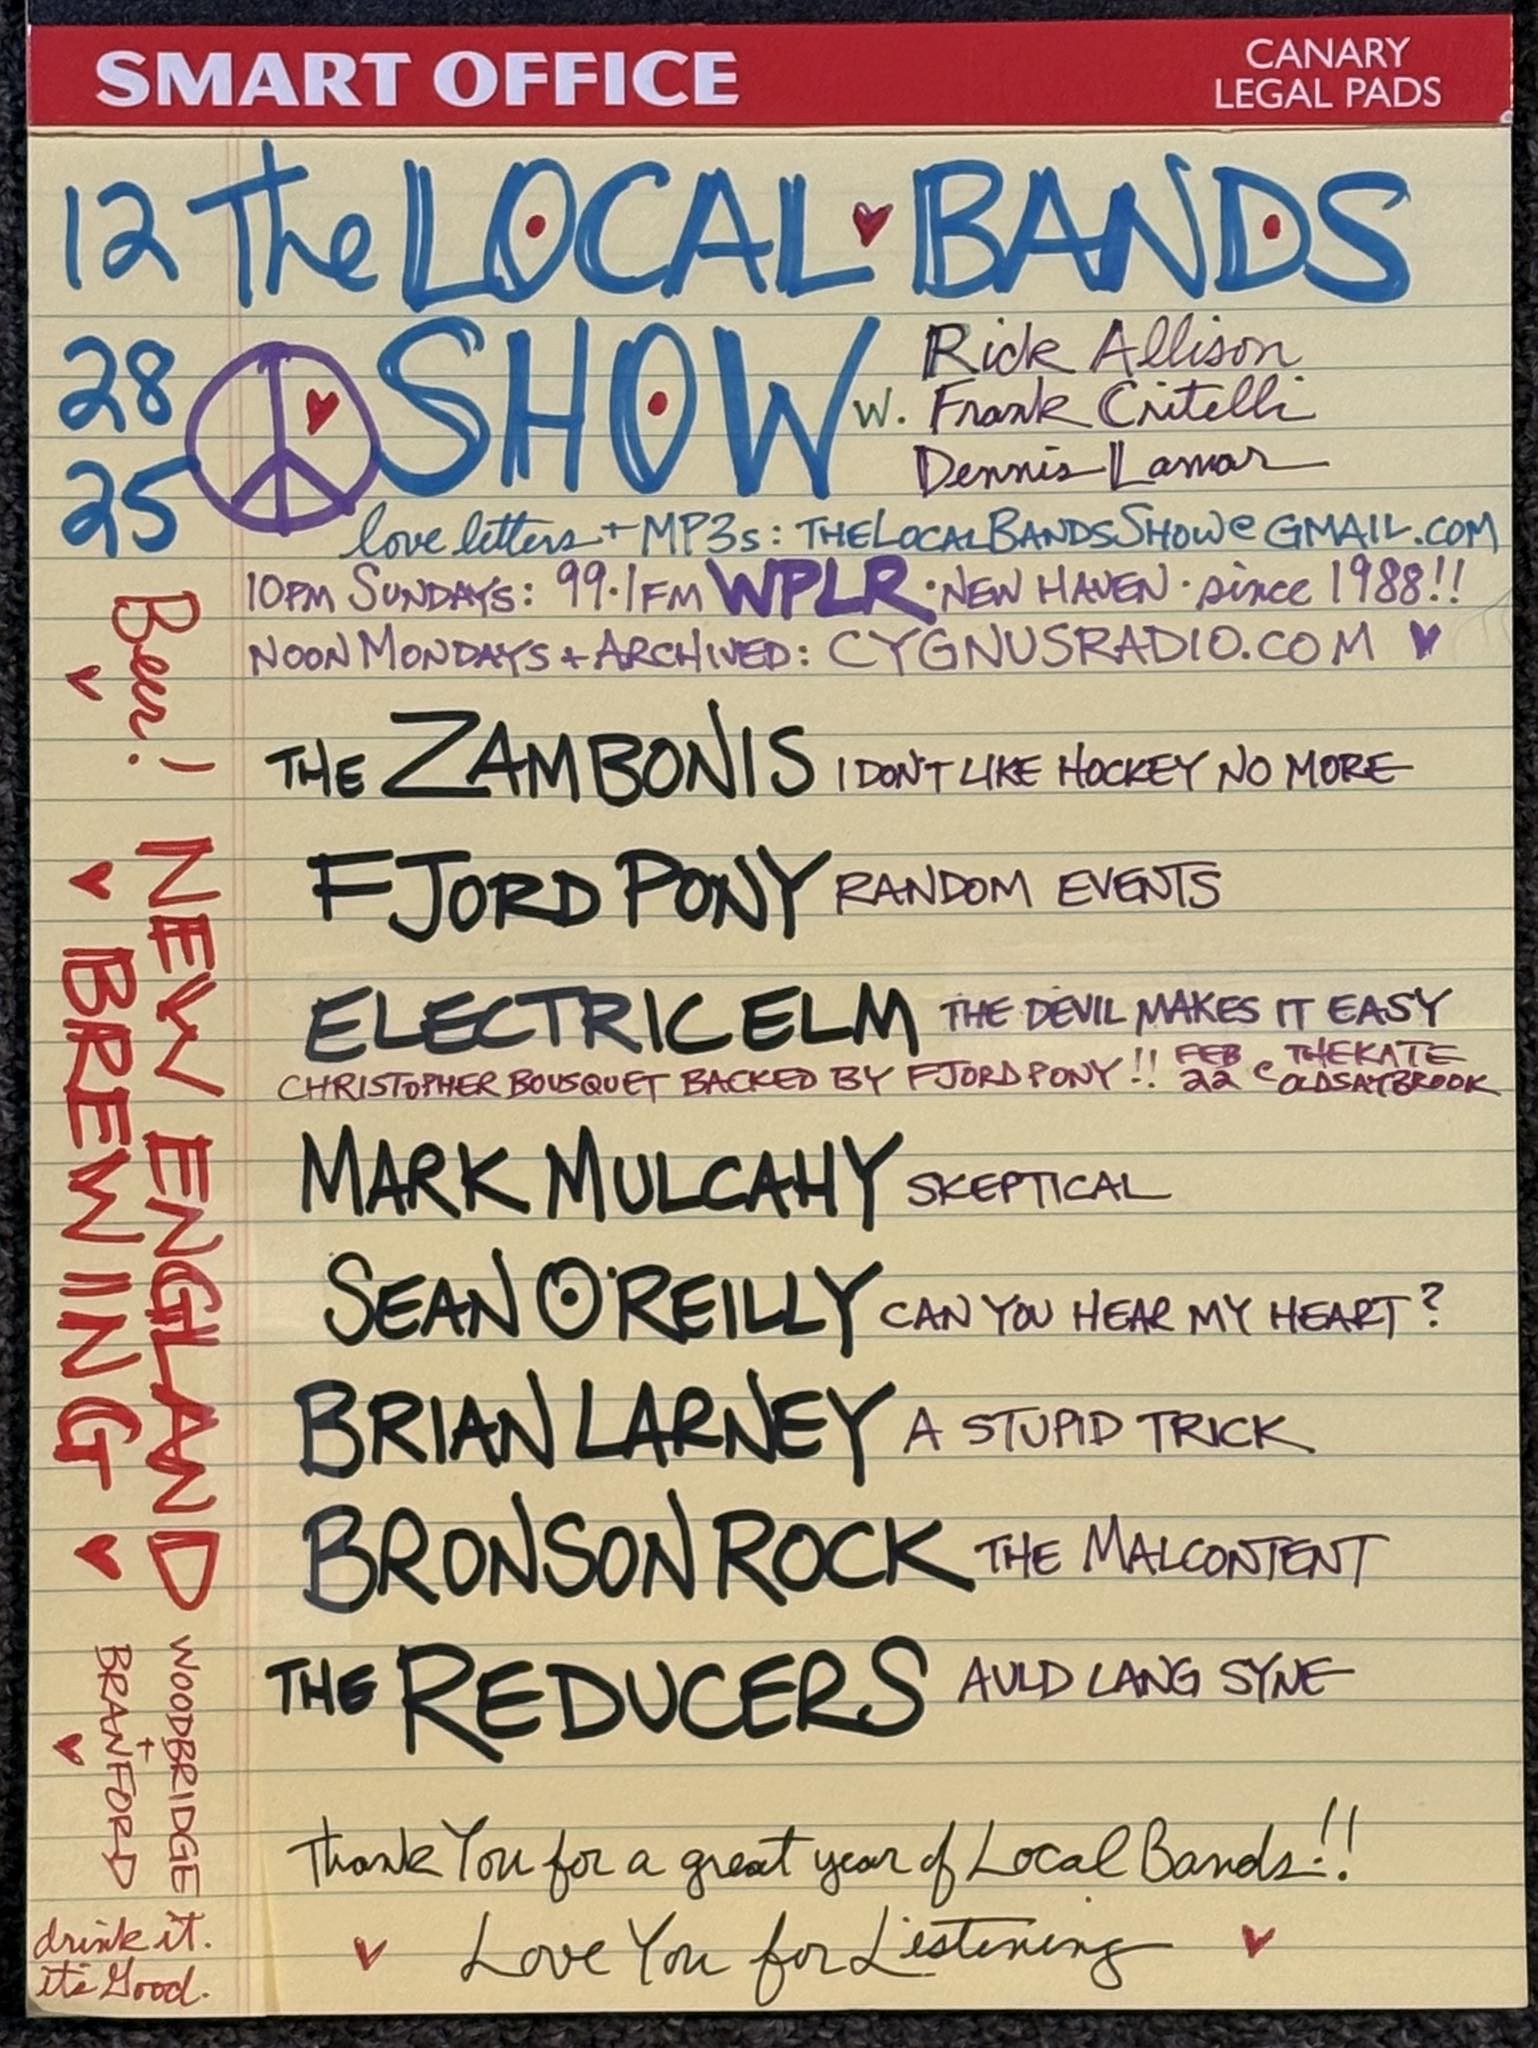 SMART OFFICE
CANARY
LEGAL PADS
12 The LOCAL BANDS
28 SHOW w. Rick Allison
Frank Critelli
Dennis Lamar
25
love letters + MP3s: THELOCALBANDSSHOW@GMAIL.COM
10PM SUNDAYS: 99.1FM WPLR · NEW HAVEN · since 1988!!
NOON MONDAYS + ARCHIVED: CYGNUSRADIO.COM
THE ZAMBONIS I DON'T LIKE HOCKEY NO MORE
FJORD PONY RANDOM EVENTS
ELECTRIC ELM THE DEVIL MAKES IT EASY
CHRISTOPHER BOUSQUET BACKED BY FJORD PONY!! FEB 22 @ THE KATE OLD SAYBROOK
MARK MULCAHY SKEPTICAL
SEAN O'REILLY CAN YOU HEAR MY HEART?
BRIAN LARNEY A STUPID TRICK
BRONSON ROCK THE MALCONTENT
THE REDUCERS AULD LANG SYNE
Thank You for a great year of Local Bands!!
Love You for Listening
Beer!
NEW ENGLAND
BREWING
WOODBRIDGE
+
BRANFORD
drink it.
it's Good.